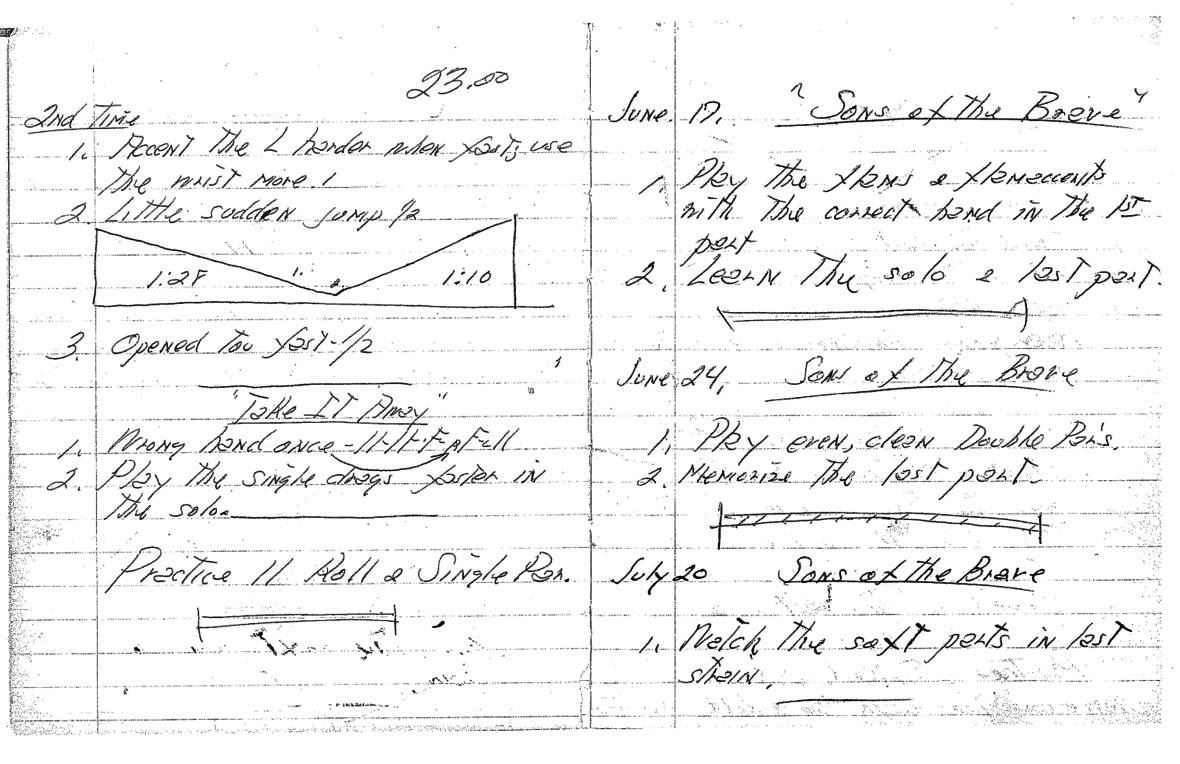 23.00
2nd Time
1. Accent the L harder when fast, use
the wrist more!
2. Little sudden jump 1/2
1:28 1. 2. 1:10
3. Opened too fast - 1/2
"Take It Away"
1. Wrong hand once - 11-11-F
2. Play the single drags faster in
the solo.
Practice 11 Roll & Single Par.
June 17, "Sons of the Brave"
1. Play the flams & flamaccents
with the correct hand in the 1st
part
2. Learn the solo & last part.
June 24, Sons of the Brave
1. Play even, clean Double Par's.
2. Memorize the last part.
July 20 Sons of the Brave
1. Watch the soft parts in last
strain.